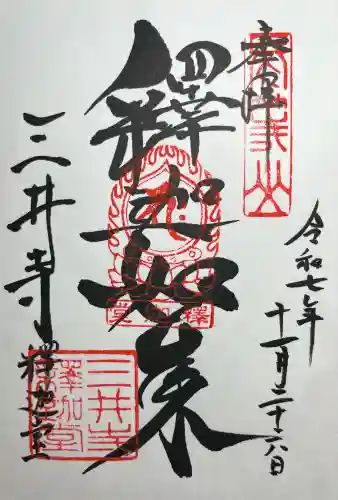 奉拝
釋迦如来
令和七年
十一月二十六日
三井寺
釋迦堂
三井寺
釋迦堂